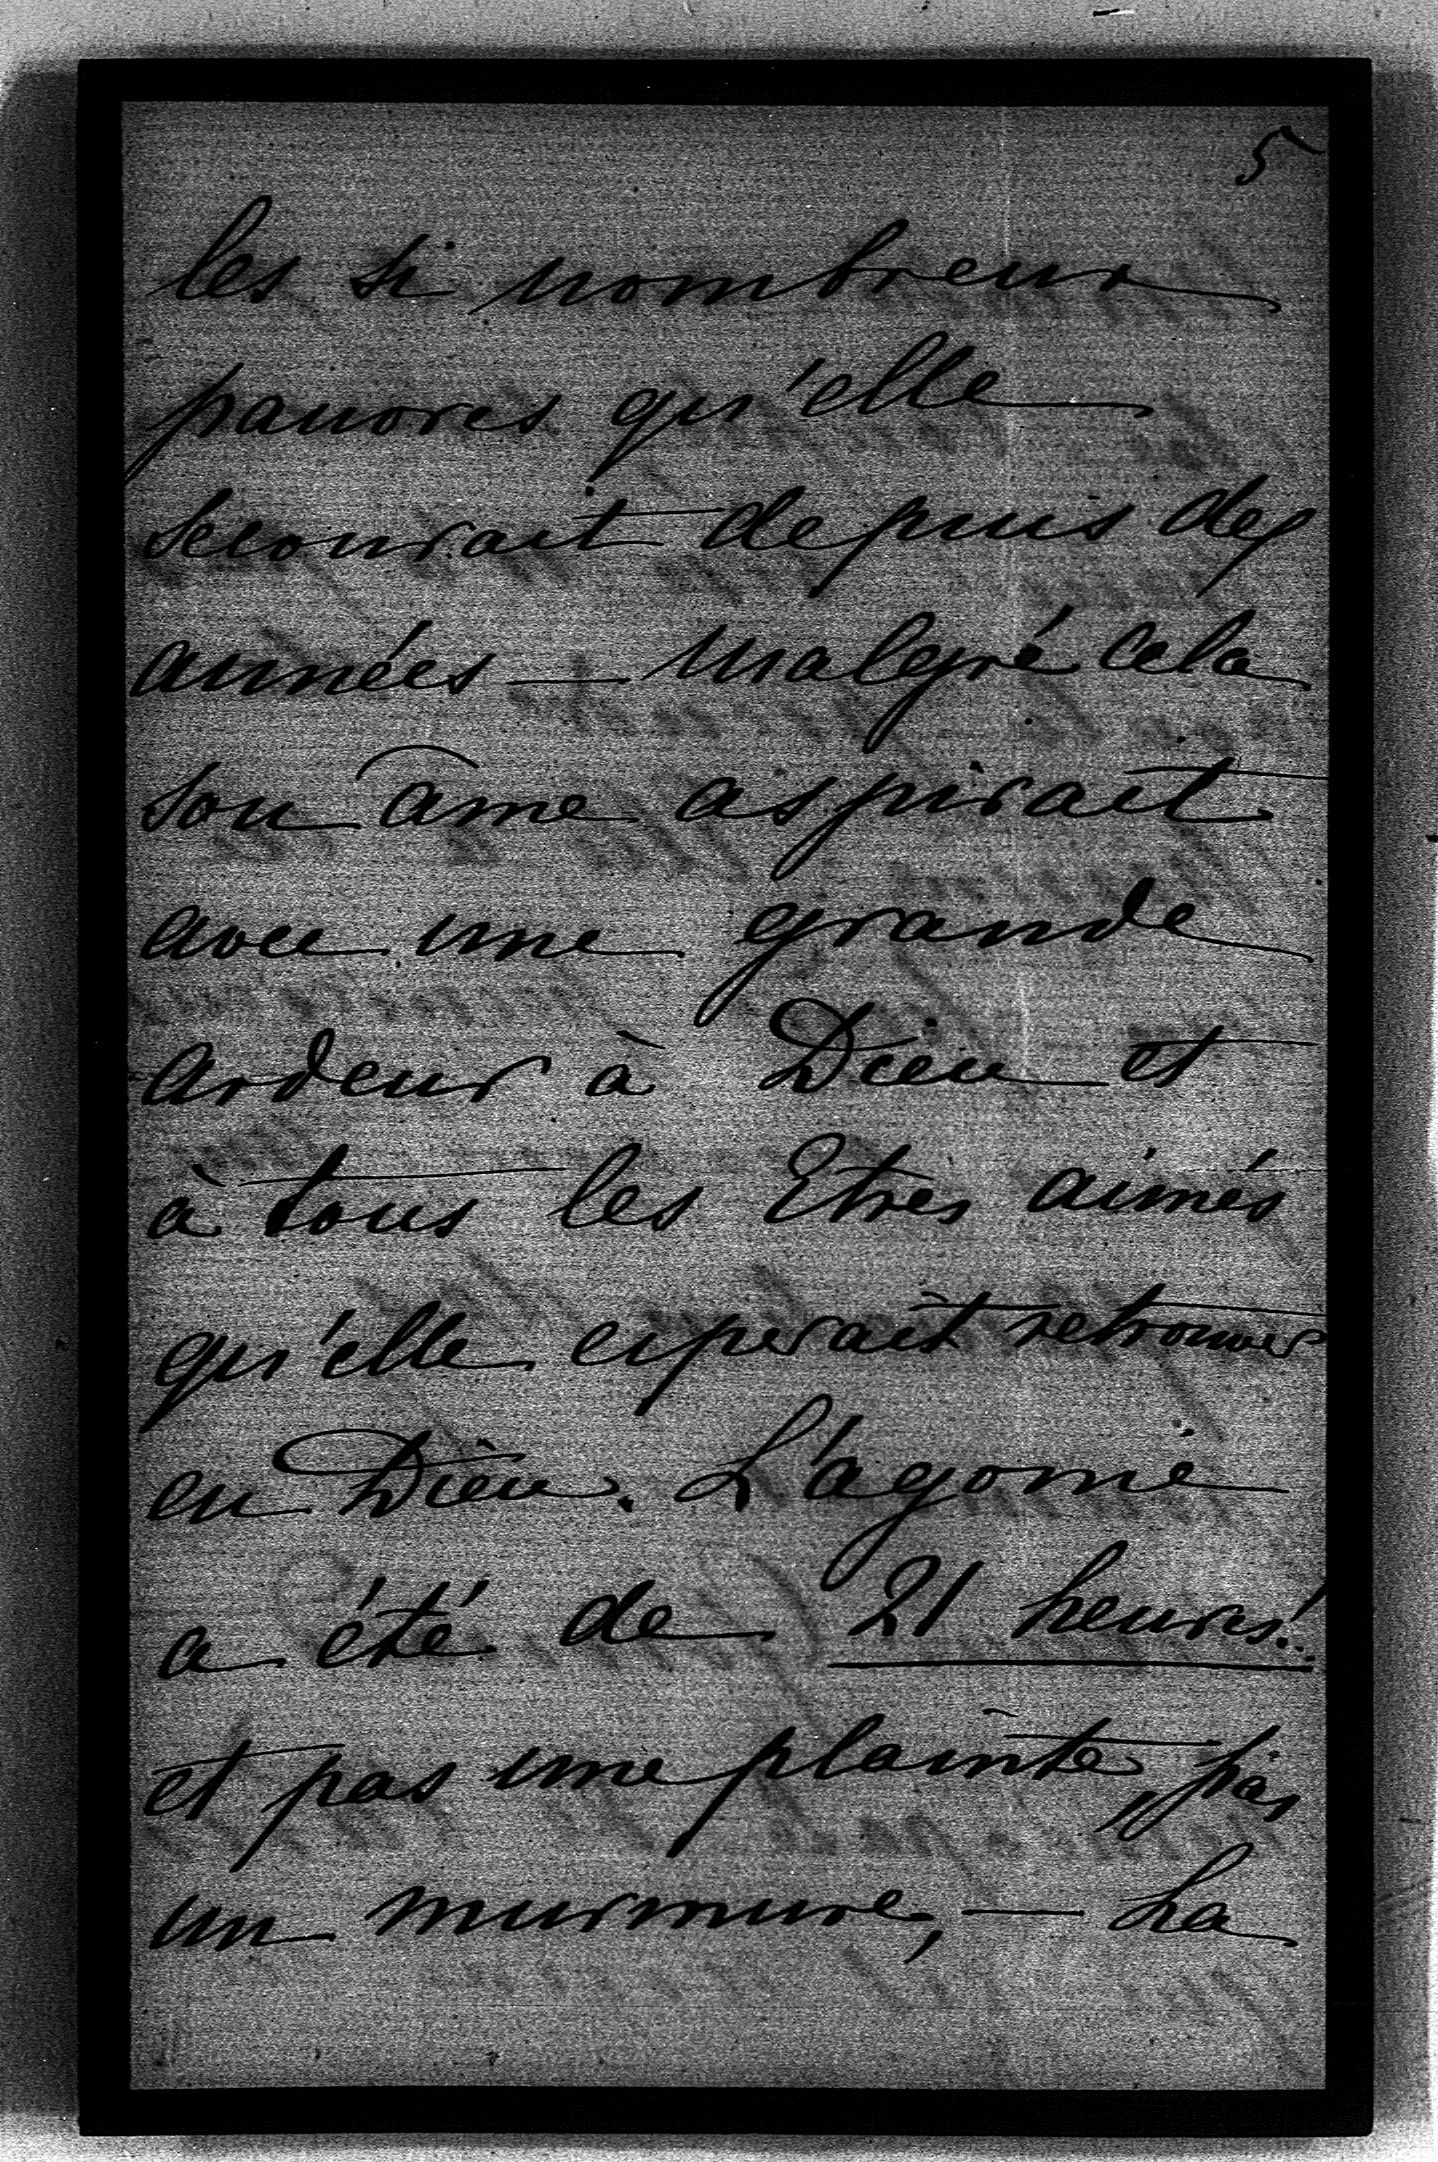 5
les si nombreux
pauvres qu'elle
secourait depuis des
années — Malgré cela
son âme aspirait
avec une grande
ardeur à Dieu et
à tous les Etres aimés
qu'elle esperait retrouver
en Dieu. L'agonie
a été de 21 heures!..
et pas une plainte, pas
un murmure, — La